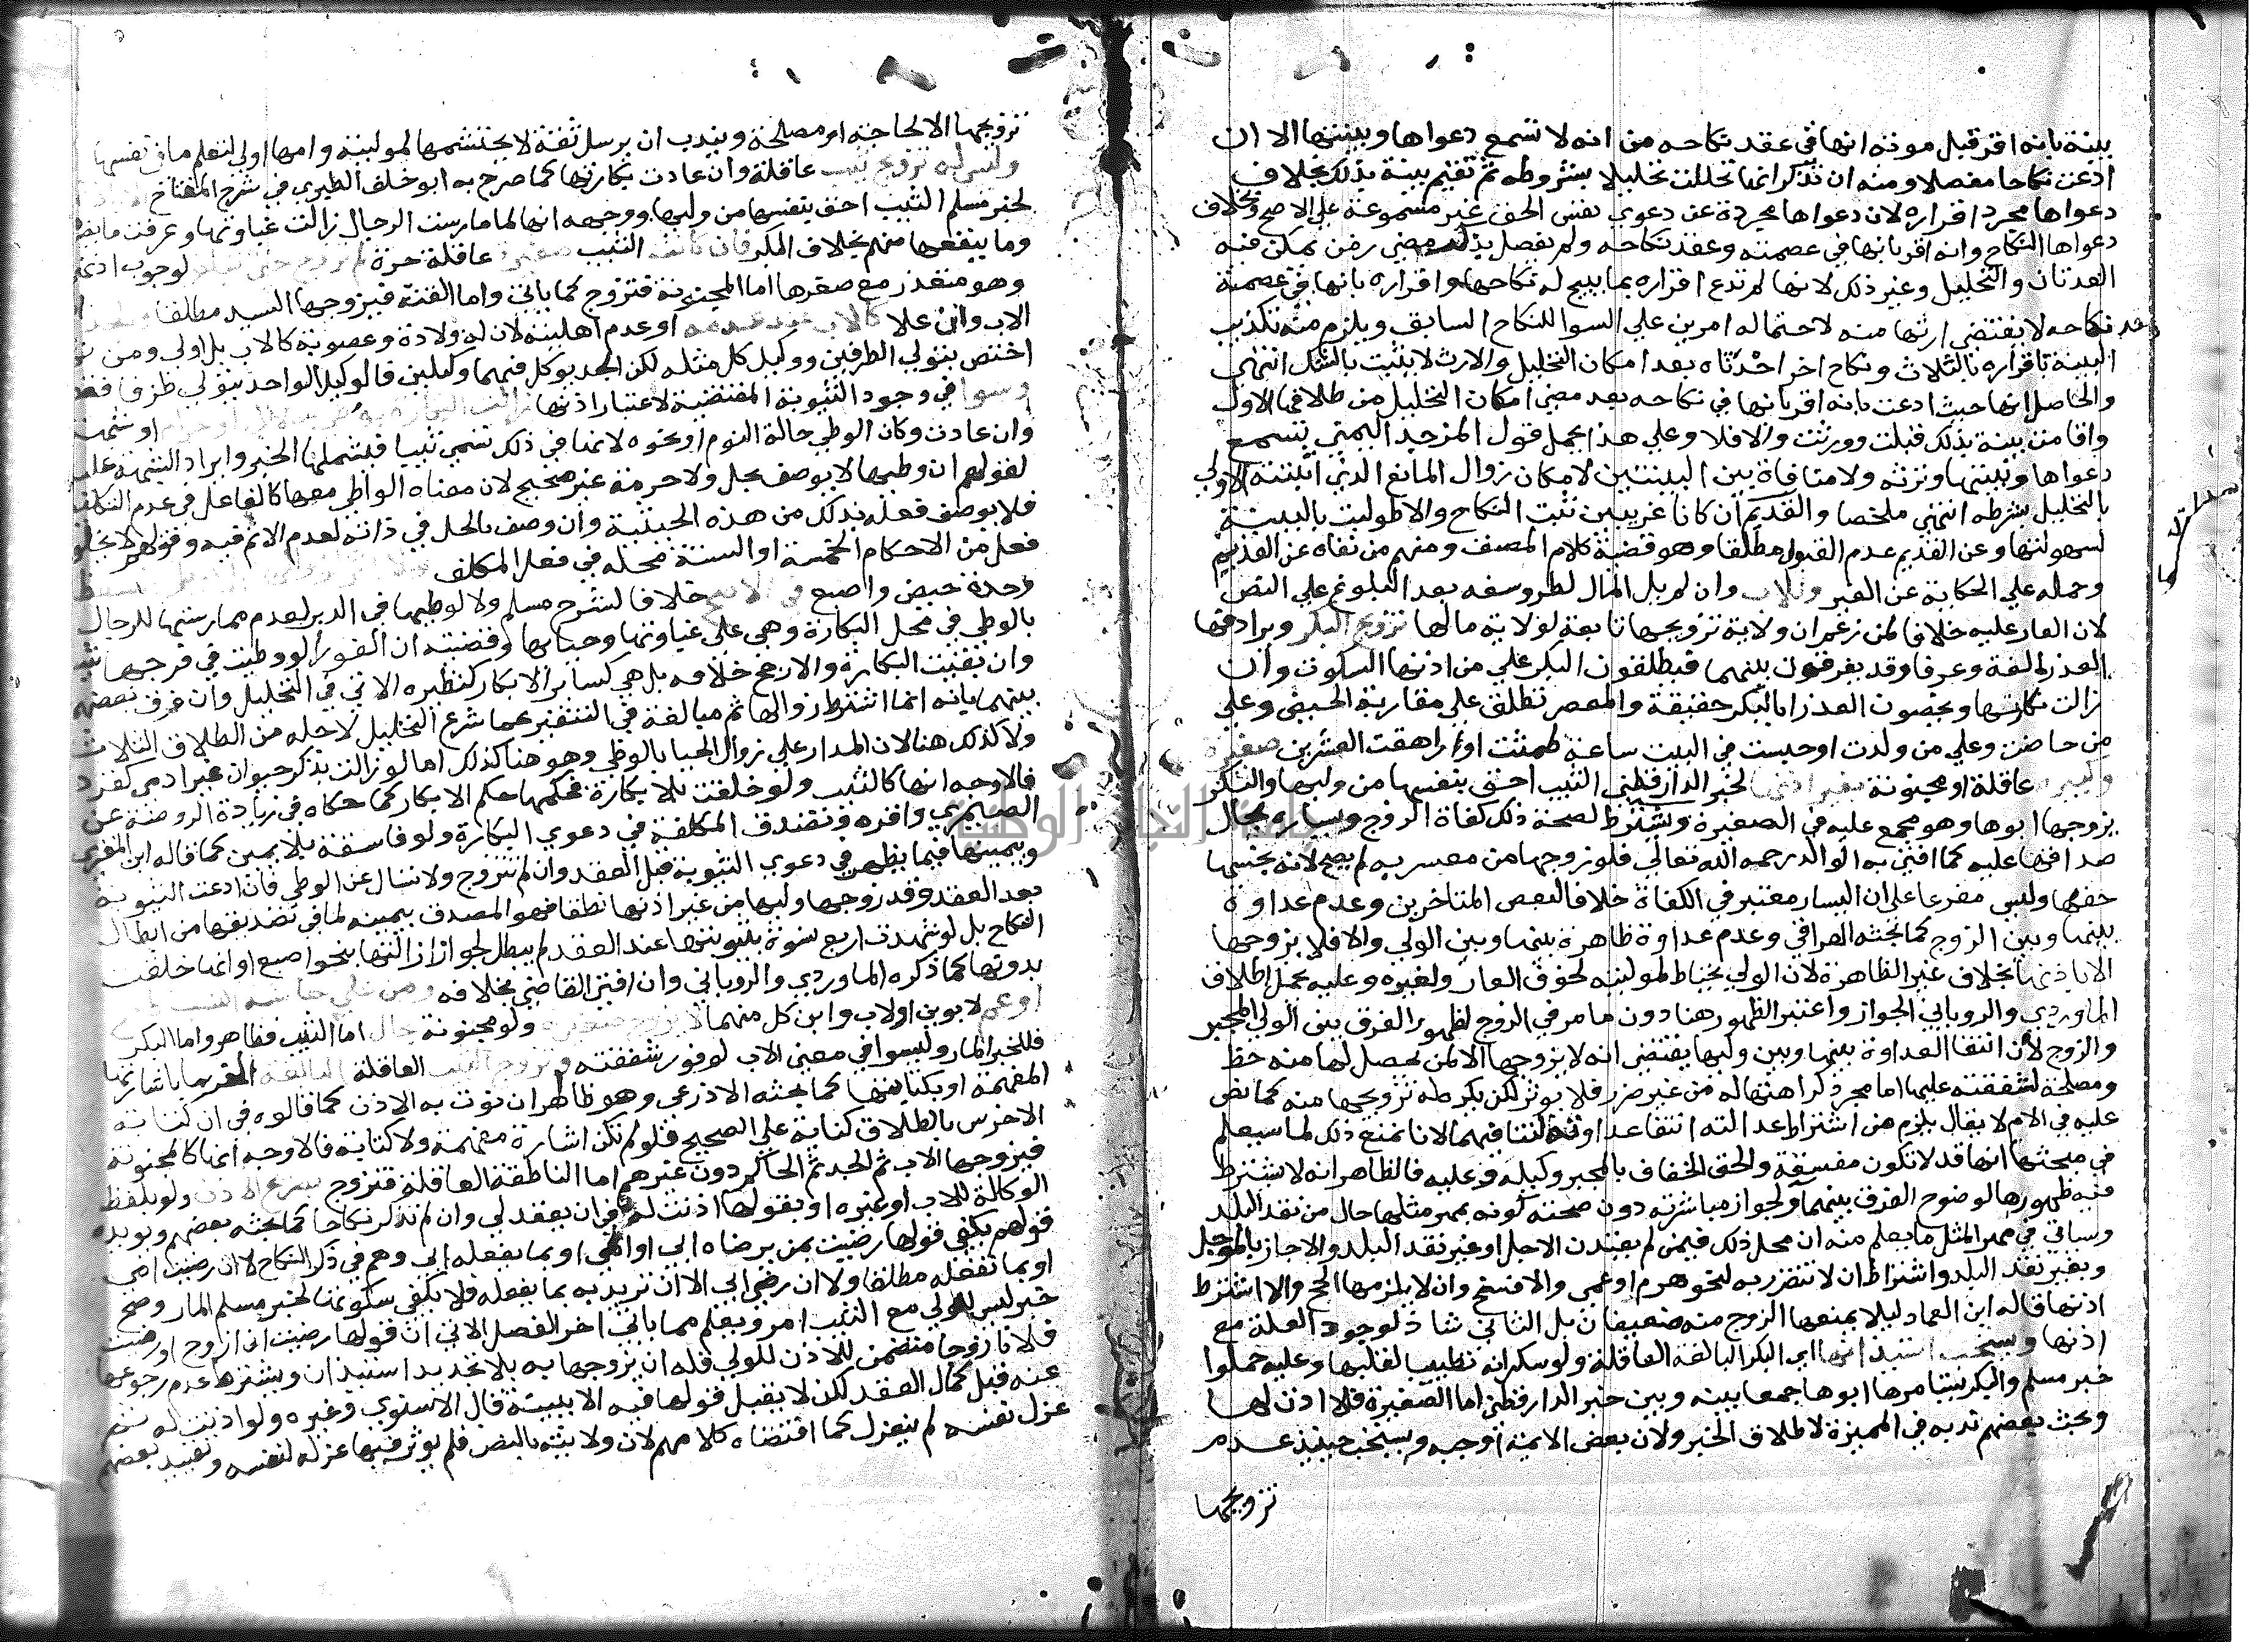 بينة بانه اقر قبل موته انها في عقد نكاحه من انه لا تسمع دعواها وبينتها الا ان
ادعت نكاحا مفصلا ومنه ان تذكر انها تحللت تحليلا بشروطه ثم تقيم بينة بذلك بخلاف
دعواها مجرد اقراره لان دعواها مجردة عن دعوي نفس الحق غير مسموعة علي الاصح وبخلاف
دعواها النكاح وانه اقر بانها في عصمته وعقد نكاحه ولم يفصل بذلك مضي زمن يمكن فيه
العدتان والتحليل وغير ذلك لانها لم تدع اقراره بما يبيح له نكاحها واقراره بانها في عصمته
وعقد نكاحه لا يقتضي ارثها منه لاحتماله امرين علي السوا النكاح السابق ويلزم منه تكذيب
البينة باقراره بالثلاث ونكاح اخر احدثاه بعد امكان التحليل والارث لا يثبت بالشك انتهي
والحاصل انها حيث ادعت بانه اقر بانها في نكاحه بعد مضي امكان التحليل من طلاقها الاول
واقامت بينة بذلك قبلت وورثت والا فلا وعلي هذا يحمل قول المزجد اليمني تسمع
دعواها وبينتها وترثه ولا منافاة بين البينتين لامكان زوال المانع الذي اثبتته الاولي
بالتحليل بشرطه انتهي ملخصا والقديم ان كانا غريبين ثبت النكاح والا طولبت بالبينة
لسهولتها وعن القديم عدم القبول مطلقا وهو قضية كلام المصنف ومنهم من نفاه عن القديم
وحمله علي الحكاية عن الغير وللاب وان لم يل المال لطرو سفه بعد البلوغ علي النص
لان العار عليه خلافا لمن زعم ان ولاية تزويجها تابعة لولاية مالها تزويج البكر ويرادفها
العذرا لغة وعرفا وقد يفرقون بينهما فيطلقون البكر علي من اذنها السكوت وان
زالت بكارتها ويخصون العذرا بالبكر حقيقة والمعصر تطلق علي مقاربة الحيض وعلي
من حاضن وعلي من ولدت او حبست في البيت ساعة طمثت او راهقت العشرين صغيرة
وكبيرة عاقلة او مجنونة بغير اذنها لخبر الدارقطني الثيب احق بنفسها من وليها والبكر
يزوجها ابوها وهو مجمع عليه في الصغيرة ويشترط لصحة ذلك كفاة الزوج ويساره بحال
صداقها عليه كما افتي به الوالد رحمه الله تعالي فلو زوجها من معسر به لم يصح لانه بخسها
حقها وليس مفرعا علي ان اليسار معتبر في الكفاة خلافا لبعض المتاخرين وعدم عداوة
بينها وبين الزوج كما بحثه العراقي وعدم عداوة ظاهرة بينها وبين الولي والا فلا يزوجها
الا باذنها بخلاف غير الظاهرة لان الولي يحتاط لموليته لخوف العار ولغيره وعليه يحمل اطلاق
الماوردي والروياني الجواز واعتبر الظهور هنا دون ما مر في الزوج لظهور الفرق بين الولي المجبر
والزوج لان انتفا العداوة بينها وبين وليها يقتضي انه لا يزوجها الا لمن يحصل لها منه حظ
ومصلحة لشفقته عليها اما مجرد كراهتها له من غير ضرر فلا يوثر لكن يكره له تزويجها منه كما نص
عليه في الام لا يقال يلزم من اشتراط عدالته انتفا عداوته لتنافيهما لانا نمنع ذلك لما سيعلم
في مبحثها انها قد لا تكون مفسقة والحق الخفاف بالمجبر وكيله وعليه فالظاهر انه لا يشترط
فيه ظهورها لوضوح الفرق بينهما ولجواز مباشرته دون صحته كونه بمهر مثلها حال من نقد البلد
وسياتي في مهر المثل ما يعلم منه ان محل ذلك فيمن لم يعتدن الاجل او غير نقد البلد والا جاز بالموجل
وبغير نقد البلد واشتراط ان لا تتضرر به لنحو هرم او عمي والا فسخ وان لا يلزمها الحج والا اشترط
اذنها قاله ابن العماد ليلا يمنعها الزوج منه ضعيفان بل الثاني شاذ لوجود العلة مع
اذنها ويستحب استيذانها اي البكر البالغة العاقلة ولو سكرانه تطييبا لقلبها وعليه حملوا
خبر مسلم والبكر يستامرها ابوها جمعا بينه وبين خبر الدارقطني اما الصغيرة فلا اذن لها
وبحث بعضهم ندبه في المميزة لاطلاق الخبر ولان بعض الايمة اوجبه ويستحب حينيذ عدم
تزويجها
تزويجها الا لحاجة او مصلحة ويندب ان يرسل ثقة لا يحتشمها لموليته وامها اولي لتعلم ما في نفسها
وليس له تزويج ثيب عاقلة وان عادت بكارتها كما صرح به ابو خلف الطبري في شرح المفتاح
لخبر مسلم الثيب احق بنفسها من وليها ووجهه انها لما مارست الرجال زالت غباوتها وعرفت ما يضر
وما ينفعها منهم بخلاف البكر فان كانت الثيب صغيرة عاقلة حرة لم تزوج حتي تبلغ لوجوب اذنها
وهو متعذر مع صغرها اما المجنونة فتزوج كما ياتي واما القنة فيزوجها السيد مطلقا
الاب وان علا كالاب عند عدمه او عدم اهليته لان له ولادة وعصوبة كالاب بل اولي ومن ثم
اختص بتولي الطرفين ووكيل كل مثله لكن الجد يوكل فيهما وكيلين فالوكيل الواحد يتولي طرفا فقط
وسوا في وجود الثيوبة المقتضية لاعتبار اذنها زالت البكارة
وان عادت وكان الوطي حالة النوم او نحوه لانها في ذلك تسمي ثيبا فيشملها الخبر وايراد الشبهة عليه
لقولهم ان وطيها لا يوصف بحل ولا حرمة غير صحيح لان معناه الواطي معها كالغافل في عدم التكليف
فلا يوصف فعله بذلك من هذه الحيثية وان وصف بالحل في ذاته لعدم الاثم فيه وقولهم لا يخلو
فعل من الاحكام الخمسة او الستة محله في فعل المكلف
وحدة حيض واصبع في الاصح خلافا لشرح مسلم ولا لوطيها في الدبر لعدم ممارستها للرجال
بالوطي في محل البكارة وهي علي غباوتها وحيايها وقضيته ان الغورا لو وطيت في فرجها ثيب
وان بقيت البكارة والارجح خلافه بل هي كسائر الابكار كنظيره الاتي في التحليل وان فرق بعضهم
بينهما بانه انما اشترط زوالها ثم مبالغة في التنفير عما شرع التحليل لاجله من الطلاق الثلاث
ولا كذلك هنا لان المدار علي زوال الحيا بالوطي وهو هنا كذلك اما لو زالت بذكر حيوان غير ادمي كقرد
فالاوجه انها كالثيب ولو خلقت بلا بكارة فحكمها حكم الابكار كما حكاه في زيادة الروضة عن
الصيمري واقره وتصدق المكلفة في دعوي البكارة ولو فاسقة بلا يمين كما قاله ابن المقري
وبيمينها فيما يظهر في دعوي الثيوبة قبل العقد وان لم تتزوج ولا تسال عن الوطي فان ادعت الثيوبة
بعد العقد وقد زوجها وليها من غير اذنها نطقا فهو المصدق بيمينه لما في تصديقها من ابطال
النكاح بل لو شهدت اربع نسوة بثيوبتها عند العقد لم يبطل لجواز ازالتها بنحو اصبع او انها خلقت
بدونها كما ذكره الماوردي والروياني وان افتي القاضي بخلافه ومن علي حاشية النسب
او عم لابوين او لاب وابن كل منهما لا يزوج صغيرة ولو مجنونة بحال اما الثيب فظاهر واما البكر
فللخبر المار وليسوا في معني الاب لوفور شفقته وتزوج الثيب العاقلة البالغة
المفهمة او بكتابتها كما بحثه الاذرعي وهو ظاهر ان نوت به الاذن كما قالوه في ان كتابة
الاخرس بالطلاق كناية علي الصحيح فلو لم تكن اشارة مفهمة ولا كتابة فالاوجه انها كالمجنونة
فيزوجها الاب ثم الجد ثم الحاكم دون غيرهم اما الناطقة العاقلة فتزوج بصريح الاذن ولو بلفظ
الوكالة للاب او غيره او بقولها اذنت له في ان يعقد لي وان لم تذكر نكاحا كما بحثه بعضهم ويويده
قولهم يكفي قولها رضيت بمن يرضاه ابي او امي او بما يفعله ابي وهم في ذكر النكاح لا ان رضيت امي
او بما تفعله مطلقا ولا ان رضي ابي الا ان تريد به بما يفعله فلا يكفي سكوتها لخبر مسلم المار وصح
خبر ليس للولي مع الثيب امر ويعلم مما ياتي اخر الفصل الاتي ان قولها رضيت ان ازوج او رضيت
فلانا زوجا متضمن للاذن للولي فله ان يزوجها به بلا تجديد استيذان ويشترط عدم رجوعها
عنه قبل كمال العقد لكن لا يقبل قولها فيه الا ببينة قال الاسنوي وغيره ولو اذنت له ثم
عزل نفسه لم ينعزل كما اقتضاه كلامهم لان ولايته بالنص فلم يوثر فيها عزله لنفسه وتقييد بعضهم